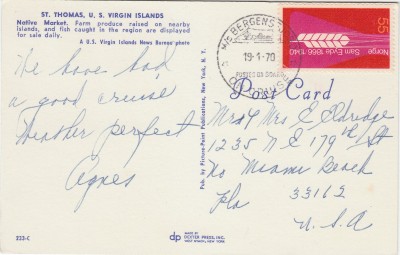 ST. THOMAS, U. S. VIRGIN ISLANDS
Native Market. Farm produce raised on nearby
islands, and fish caught in the region are displayed
for sale daily.
A U.S. Virgin Islands News Bureau photo
We have had
a good cruise
Weather perfect
Agnes
223-C
Pub. by Picture-Point Publications, New York, N. Y.
dp
MADE BY
DEXTER PRESS, INC.
WEST NYACK, NEW YORK
BERGENS
19-1-70
POSTED ON BOARD
55
Norge
Sam Eyde 1866-1940
Post Card
Mr & Mrs E Eldredge
1235 N E 179th St
No Miami Beach
Fla 33162
U.S.A